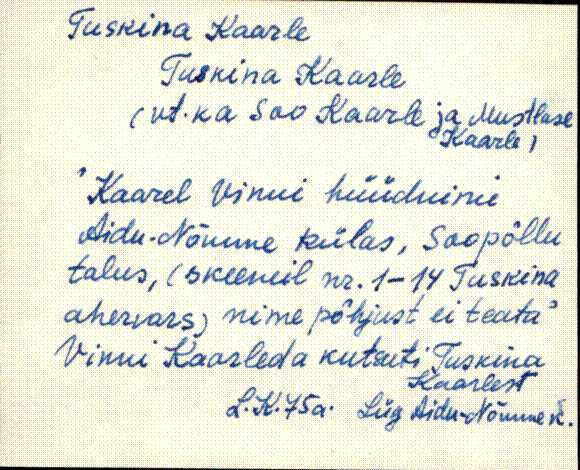 Tuskina Kaarle
Tuskina Kaarle
(vt. ka Soo Kaarle ja Mustlase
Kaarle)
"Kaarel Vinni hüüdnimi
Aidu-Nõmme külas, Soopõllu
talus, (skeemil nr. 1-14 Tuskina
ahervars) nime põhjust ei teata"
Vinni Kaarleda kutsuti Tuskina
Kaarlest
L.K. 75a. Lüg Aidu-Nõmme k.